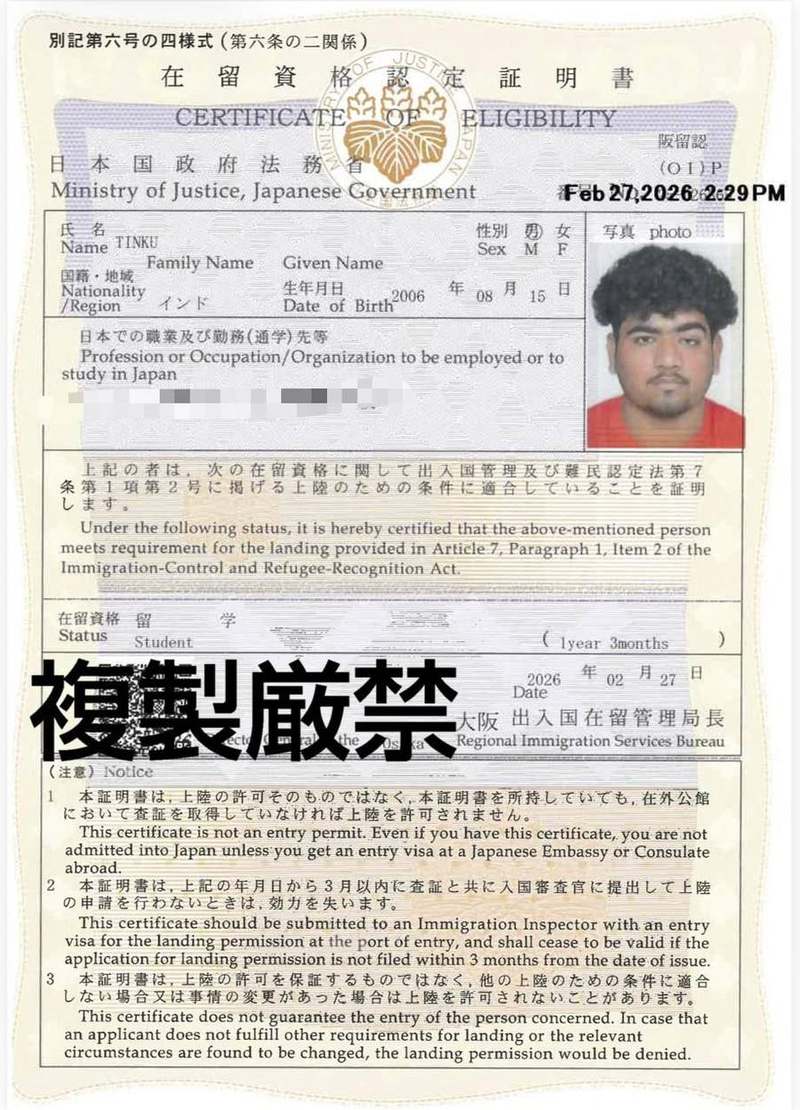 別記第六号の四様式(第六条の二関係)
在留資格認定証明書
CERTIFICATE OF ELIGIBILITY
MINISTRY OF JUSTICE JAPAN
阪留認
日本国政府法務省
(OI)P
Ministry of Justice, Japanese Government
Feb 27,2026 2:29PM
氏名
性別 男 女
写真 photo
Name TINKU
Sex M F
Family Name Given Name
国籍・地域
生年月日
Nationality
2006 年 08 月 15 日
/Region インド
Date of Birth
日本での職業及び勤務(通学)先等
Profession or Occupation/Organization to be employed or to
study in Japan
上記の者は、次の在留資格に関して出入国管理及び難民認定法第7
条第1項第2号に掲げる上陸のための条件に適合していることを証明
します。
Under the following status, it is hereby certified that the above-mentioned person
meets requirement for the landing provided in Article 7, Paragraph 1, Item 2 of the
Immigration-Control and Refugee-Recognition Act.
在留資格 留学
Status Student
( 1year 3months )
2026 年 02 月 27 日
Date
複製厳禁
大阪 出入国在留管理局長
the Osaka Regional Immigration Services Bureau
(注意) Notice
1 本証明書は、上陸の許可そのものではなく、本証明書を所持していても、在外公館
において査証を取得していなければ上陸を許可されません。
This certificate is not an entry permit. Even if you have this certificate, you are not
admitted into Japan unless you get an entry visa at a Japanese Embassy or Consulate
abroad.
2 本証明書は、上記の年月日から3月以内に査証と共に入国審査官に提出して上陸
の申請を行わないときは、効力を失います。
This certificate should be submitted to an Immigration Inspector with an entry
visa for the landing permission at the port of entry, and shall cease to be valid if the
application for landing permission is not filed within 3 months from the date of issue.
3 本証明書は、上陸の許可を保証するものではなく、他の上陸のための条件に適合
しない場合又は事情の変更があった場合は上陸を許可されないことがあります。
This certificate does not guarantee the entry of the person concerned. In case that
an applicant does not fulfill other requirements for landing or the relevant
circumstances are found to be changed, the landing permission would be denied.